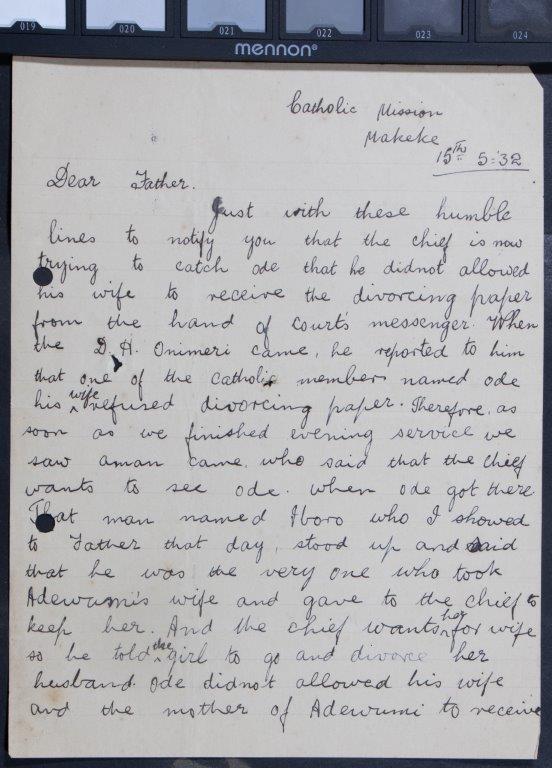 019 020 021 022 023 024
mennon®
Catholic Mission
Makeke
15th 5:32
Dear Father.
Just with these humble
lines to notify you that the chief is now
trying to catch Ode that he didnot allowed
his wife to receive the divorcing paper
from the hand of court's messenger. When
the D. H. Onimeri came, he reported to him
that one of the catholic members named Ode
his wife refused divorcing paper. Therefore, as
soon as we finished evening service we
saw aman came, who said that the chief
wants to see ode. When ode got there
That man named Iboro who I showed
to Father that day, stood up and said
that he was the very one who took
Adewumi's wife and gave to the chief to
keep her. And the chief wants her for wife
so he told the girl to go and divorce her
husband. Ode didnot allowed his wife
and the mother of Adewumi to receive